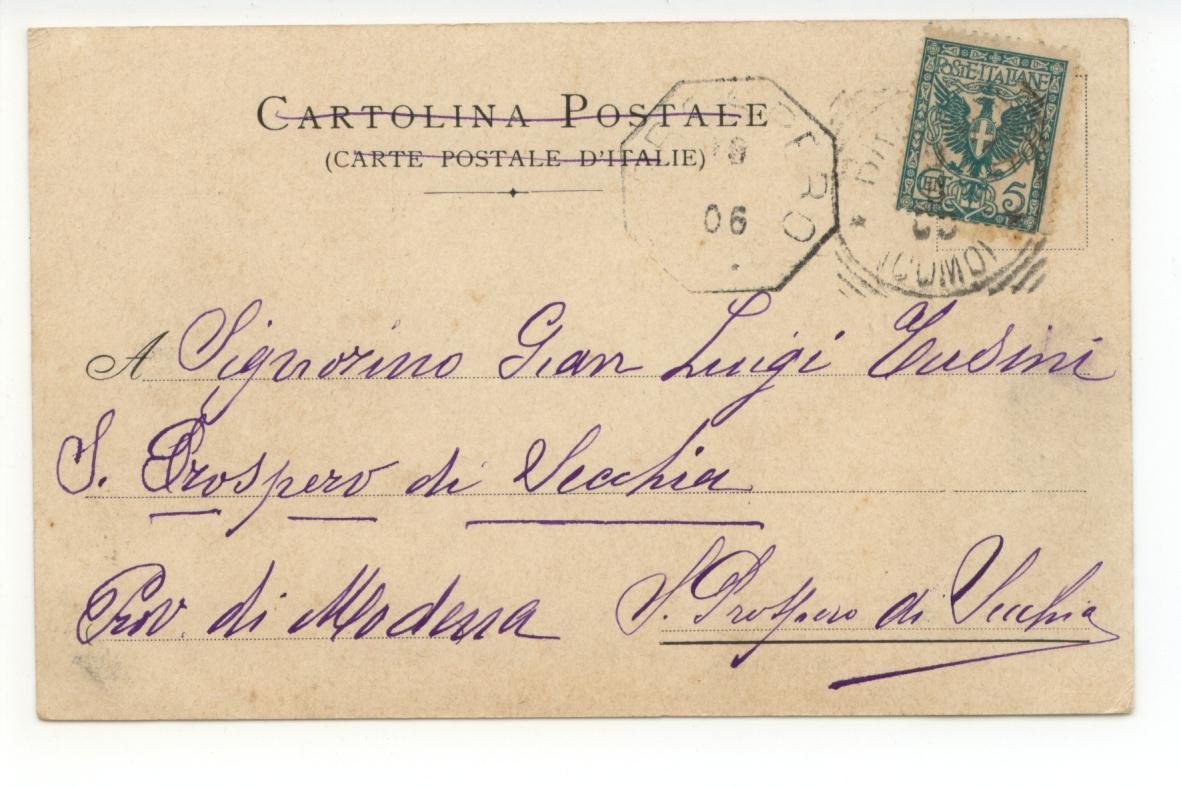 CARTOLINA POSTALE
(CARTE POSTALE D'ITALIE)
POSTE·ITALIANE
CEN 5
06
(COMO)
A Signorino Gian Luigi Tusini
S. Prospero di Secchia
Prov. di Modena
S. Prospero di Secchia